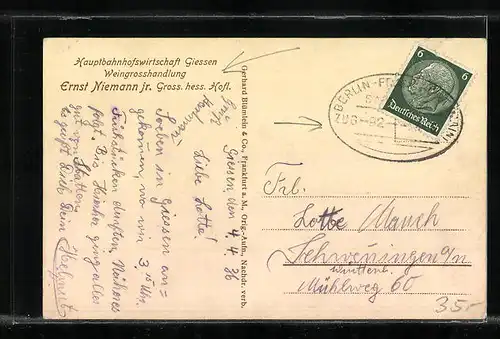 Hauptbahnhofswirtschaft Giessen
Weingrosshandlung
Ernst Niemann jr. Gross. hess. Hofl.
Gerhard Blümlein & Co., Frankfurt a. M., Orig.-Aufn., Nachdr. verb.
Giessen den 4/4 36
Liebe Lotte!
Soeben in Giessen an=
gekommen, wo wir 3.15 Uhr
Frühstücken durften. Näheres
folgt. Bis hierher ging alles
gut
Es grüßt Dich Dein Helmut
BERLIN-
ZUG 
6 6
Deutsches Reich
Frl.
Lotte Mauch
Schwenningen a/N
Württemb.
Mühlweg 60
35.-